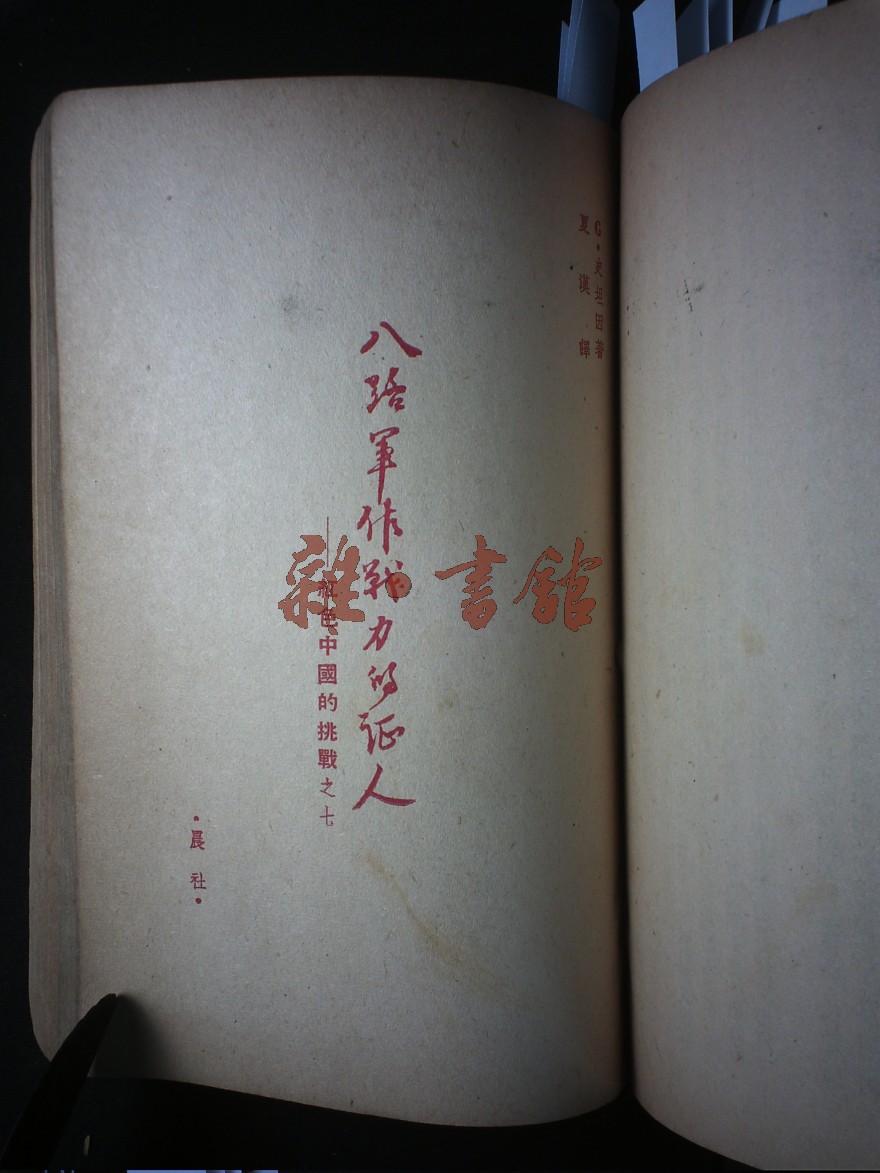 G·史坦因著
夏漢譯
八路军作戰力的证人
——紅色中國的挑戰之七
·晨社·
雜·書館